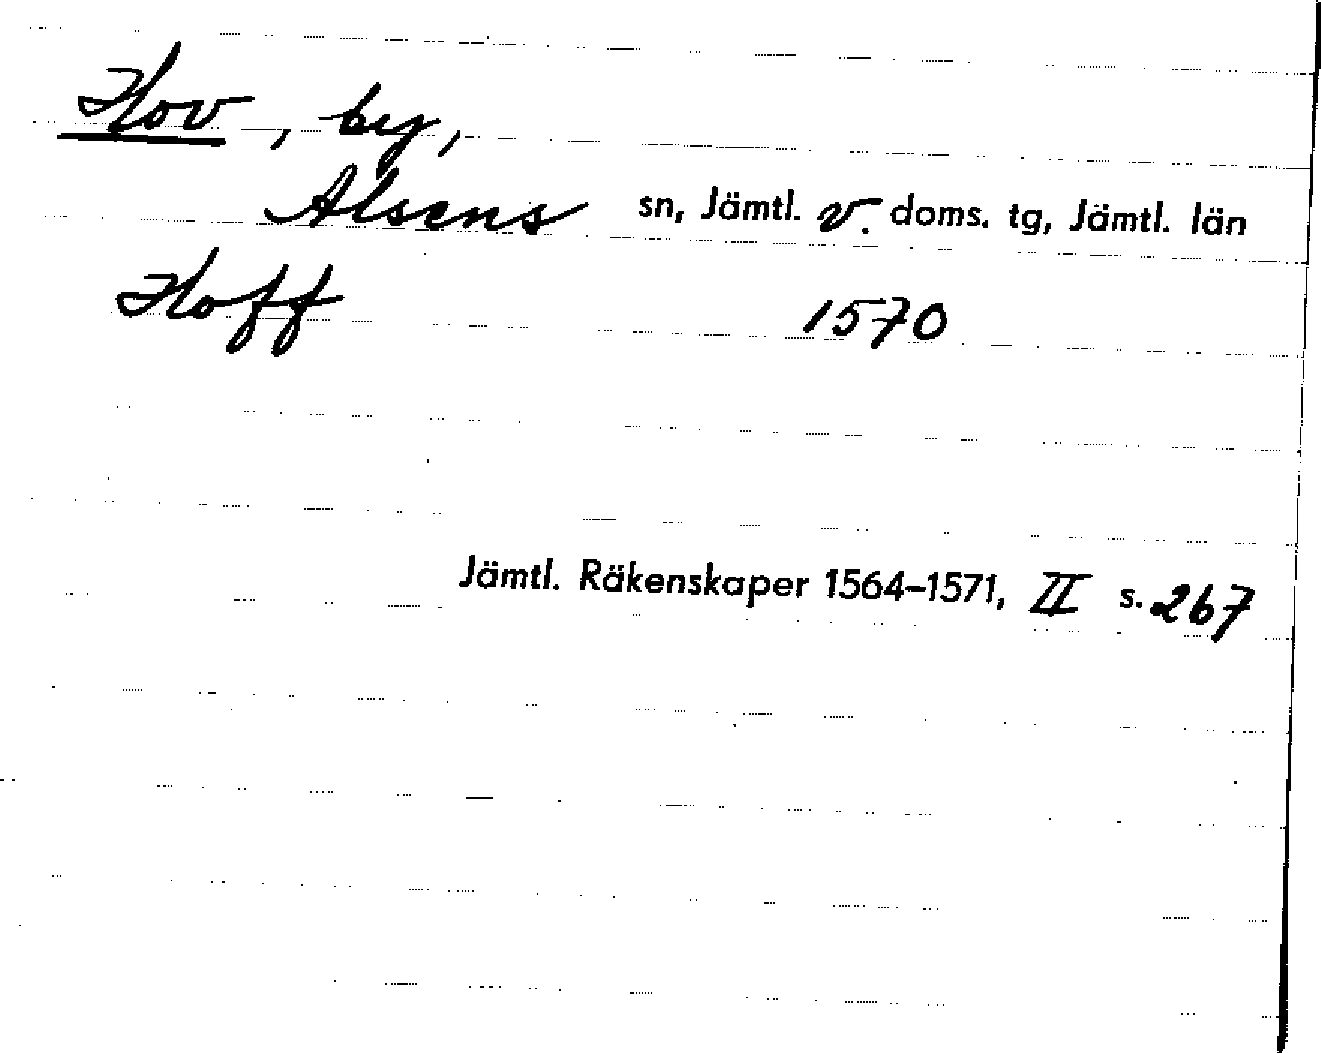 Hov, by,
Alsens sn, Jämtl. v. doms. tg, Jämtl. län
Hoff 1570
Jämtl. Räkenskaper 1564–1571, II s. 267